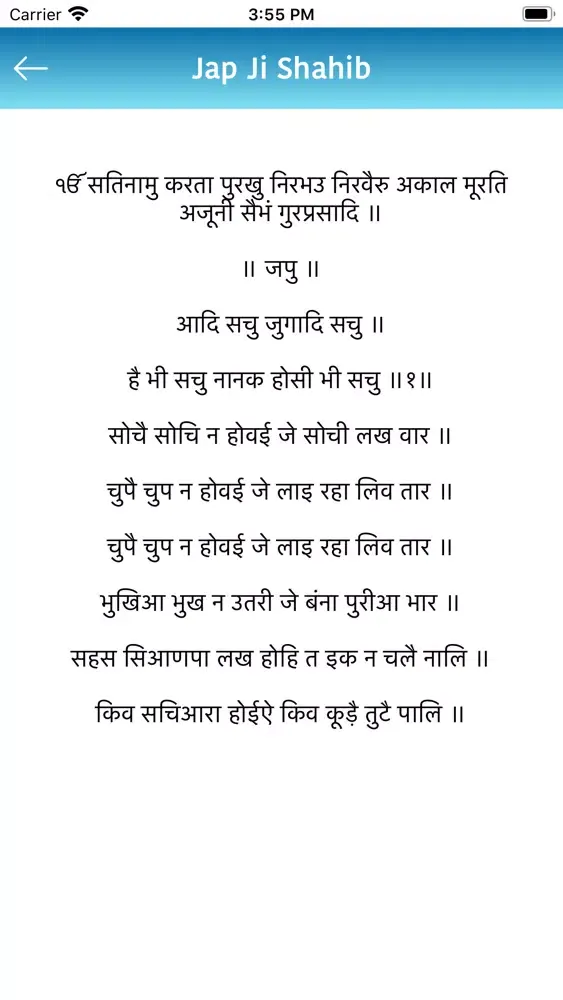 Carrier 3:55 PM
Jap Ji Shahib
ੴ सतिनामु करता पुरखु निरभउ निरवैरु अकाल मूरति
अजूनी सैभं गुरप्रसादि ॥
॥ जपु ॥
आदि सचु जुगादि सचु ॥
है भी सचु नानक होसी भी सचु ॥१॥
सोचै सोचि न होवई जे सोची लख वार ॥
चुपै चुप न होवई जे लाइ रहा लिव तार ॥
चुपै चुप न होवई जे लाइ रहा लिव तार ॥
भुखिआ भुख न उतरी जे बंना पुरीआ भार ॥
सहस सिआणपा लख होहि त इक न चलै नालि ॥
किव सचिआरा होईऐ किव कूड़ै तुटै पालि ॥